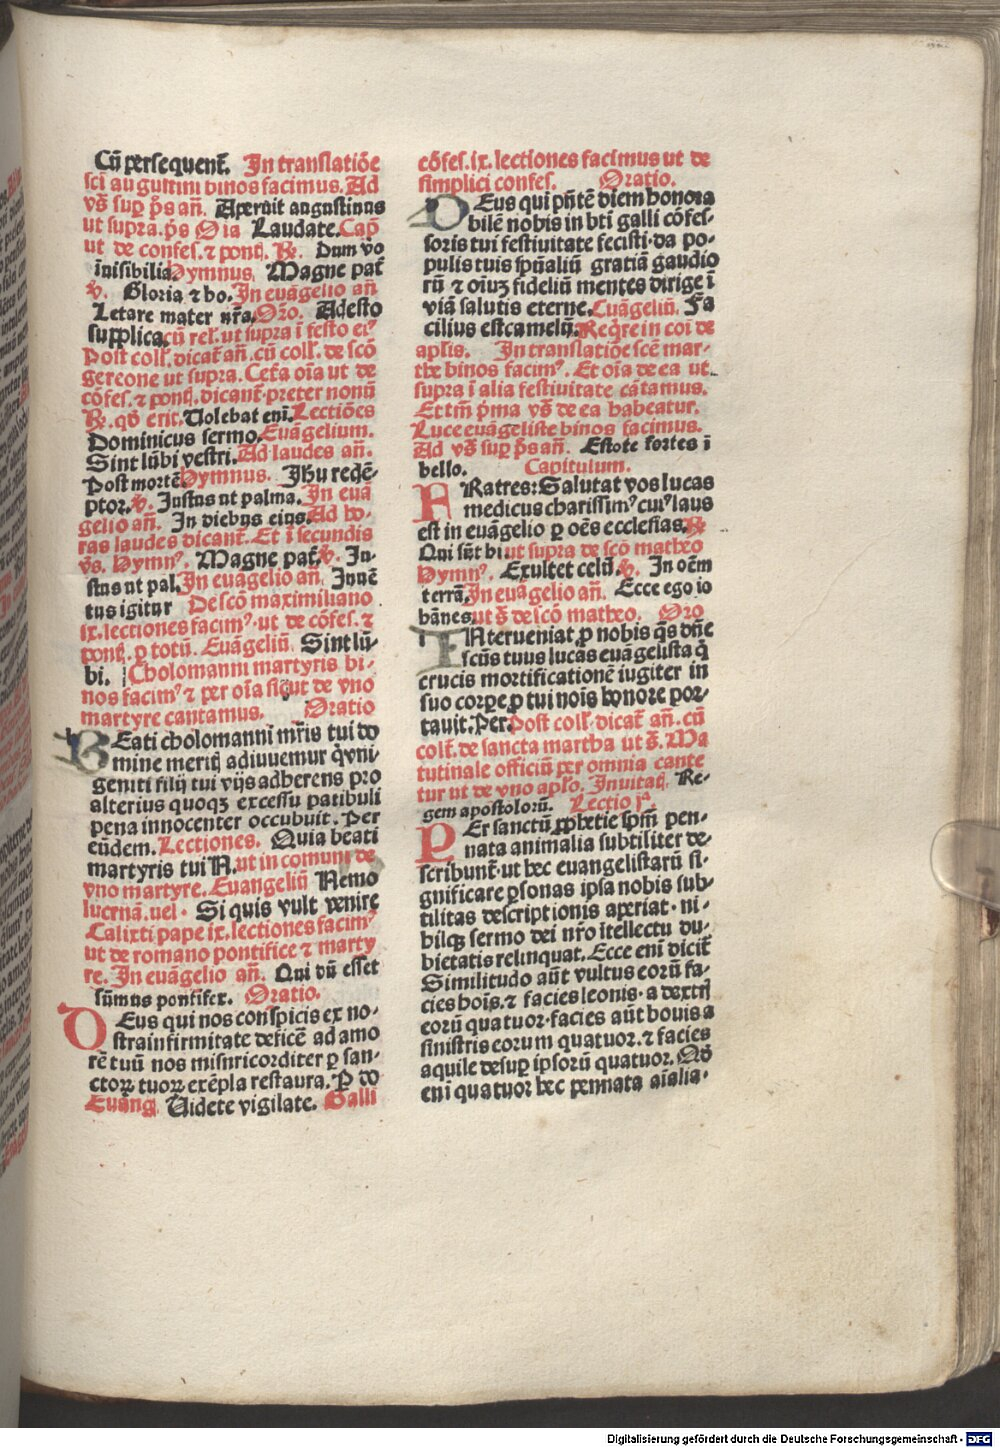 Cū persequent̄. In translatiōe
sci augustini binos facimus. Ad
vs̄ sup̄ ps̄ an̄. Aperuit augustinus
ut supra. ps̄ Oīa Laudate. Cap̄
ut de confes. ⁊ ponti. R̄. Dum vo
inisibilia. Hymnus. Magne pat̄
v̄. Gloria ⁊ ho. In euāgelio an̄
Letare mater nr̄a. Oro. Adesto
supplica. cū rel̄. ut supra ī festo eiꝰ
Post coll̄. dicat̄ an̄. cū coll̄. de scō
gereone ut supra. Cet̄a oīa ut de
cōfes. ⁊ ponti. dicant̄ preter nonū
R̄. qḋ erit. Uolebat enī. Lectiōes
Dominicus sermo. Euāgelium.
Sint lūbi vestri. Ad laudes an̄.
Post mortē Hymnus. Jhu redē-
ptor. v̄. Justus ut palma. In euā
gelio an̄. In diebus eius. Ad ho-
ras laudes dicant̄. Et ī secundis
vs. Hymnꝰ. Magne pat̄. v̄. Ju-
stus ut pal. In euagelio an̄. Inuē
tus igitur De scō maximiliano
ix. lectiones facimꝰ. ut de cōfes. ⁊
ponti. ꝑ totū. Euāgeliū. Sint lū-
bi. Cholomanni martyris bi-
nos facimꝰ ⁊ per oīa sicut de vno
martyre cantamus. Oratio
BEati cholomanni mr̄is tui do
mine meritꝫ adiuuemur q̇ vni-
geniti filij tui vijs adherens pro
alterius quoqꝫ excessu patibuli
pena innocenter occubuit. Per
eūdem. Lectiones. Quia beati
martyris tui N. ut in comuni de
vno martyre. Euangeliū Nemo
lucernā. uel. Si quis vult venire
Calixti pape ix. lectiones facimꝰ
ut de romano pontifice ⁊ marty
re. In euāgelio an̄. Qui dū esset
sūmus pontifex. Oratio.
DEus qui nos conspicis ex no-
stra infirmitate deficē ad amo
rē tuū nos misericorditer ꝑ san-
ctoꝝ tuoꝝ exēpla restaura. P do
Euāng Uidete vigilate. Galli
cōfes. ix. lectiones facimus ut de
simplici confes. Oratio.
DEus qui pn̄tē diem honora
bilē nobis in bti galli cōfes-
soris tui festiuitate fecisti. da po-
pulis tuis spūaliū gratiā gaudio
rū ⁊ oiuꝫ fideliū mentes dirige ī
viā salutis eterne. Euāgeliū. Fa
cilius est camelū. Reqͥre in coi de
aplis. In translatiōe scē mar-
the binos facimꝰ. Et oīa de ea ut
supra ī alia festiuitate cātamus.
Et tm̄ pͥma vs̄ de ea habeatur.
Luce euāgeliste binos facimus.
Ad vs̄ sup̄ ps̄ an̄. Estote fortes ī
bello. Capitulum.
FRatres: Salutat vos lucas
medicus charissimꝰ cuiꝰ laus
est in euāgelio ꝑ oēs ecclesias. R̄
Qui sūt hi. ut supra de scō matheo
Hymnꝰ. Exultet celū. v̄. In oēm
terrā. In euāgelio an̄. Ecce ego io
hānes. ut s̄ de scō matheo. Oro
INterueniat ꝓ nobis qͣs dn̄e
scūs tuus lucas euāgelista qͥ
crucis mortificationē iugiter in
suo corpe ꝓ tui nois honore por-
tauit. Per. Post coll̄. dicat̄ an̄. cū
colt̄. de sancta martha ut s̄. Ma
tutinale officiū per omnia cante
tur ut de vno aplo. Inuitatꝫ. Re-
gem apostolorū. Lectio jͣ.
PEr sanctū ꝓphetie spm̄ pen-
nata animalia subtiliter de-
scribunt̄. ut hec euangelistarū si-
gnificare ꝑsonas ipsa nobis sub-
tilitas descriptionis aperiat. ni-
hilqꝫ sermo dei nr̄o ītellectu du-
bietatis relinquat. Ecce eni dicit̄
Similitudo aūt vultus eorū fa-
cies hoīs. ⁊ facies leonis. a dextris
eorū quatuor. facies aūt bouis a
sinistris eorum quatuor. ⁊ facies
aquile desuꝑ ipsorū quatuor. Qḋ
eni quatuor hec pennata aīalia.
Digitalisierung gefördert durch die Deutsche Forschungsgemeinschaft - DFG